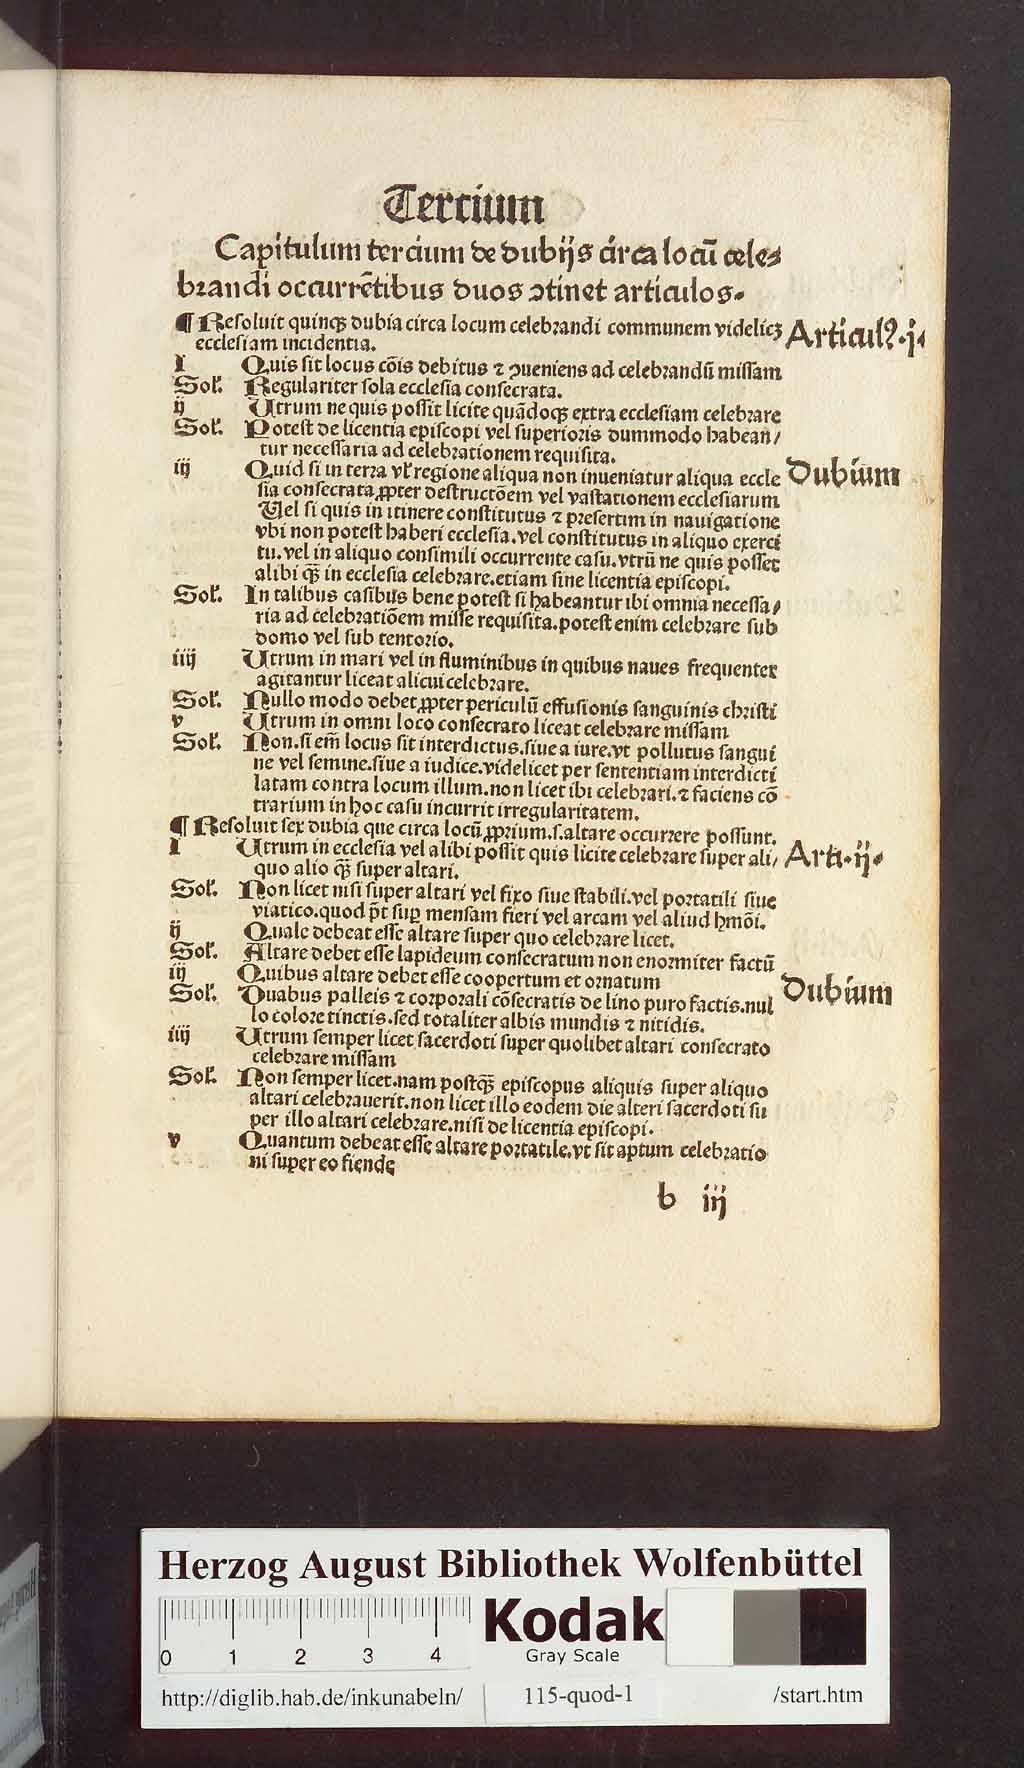 Tercium
Capitulum tercium de dubijs circa locū cele⸗
brandi occurrētibus duos ꝯtinet articulos.
¶ Resoluit quinqꝫ dubia circa locum celebrandi communem videlicꝫ
ecclesiam incidentia.
Articulꝰ.j.
I Quis sit locus cōis debitus ⁊ ꝯueniens ad celebrandū missam
Sol. Regulariter sola ecclesia consecrata.
ij Utrum ne quis possit licite quādoqꝫ extra ecclesiam celebrare
Sol. Potest de licentia episcopi vel superioris dummodo habean/
tur necessaria ad celebrationem requisita.
iij Quid si in terra vl' regione aliqua non inueniatur aliqua eccle
Dubium
sia consecrata ꝓpter destructōem vel vastationem ecclesiarum
Vel si quis in itinere constitutus ⁊ presertim in nauigatione
vbi non potest haberi ecclesia.vel constitutus in aliquo exerci
tu.vel in aliquo consimili occurrente casu.vtrū ne quis posset
alibi qꝫ̄ in ecclesia celebrare.etiam sine licentia episcopi.
Sol. In talibus casibus bene potest si habeantur ibi omnia necessa/
ria ad celebratiōem misse requisita.potest enim celebrare sub
domo vel sub tentorio.
iiij Utrum in mari vel in fluminibus in quibus naues frequenter
agitantur liceat alicui celebrare.
Sol. Nullo modo debet ꝓpter periculū effusionis sanguinis christi
v Utrum in omni loco consecrato liceat celebrare missam
Sol. Non.si em̄ locus sit interdictus.siue a iure.vt pollutus sangui
ne vel semine.siue a iudice.videlicet per sententiam interdicti
latam contra locum illum.non licet ibi celebrari.⁊ faciens cō
trarium in hoc casu incurrit irregularitatem.
¶ Resoluit sex dubia que circa locū ꝓprium.s.altare occurrere possunt.
I Utrum in ecclesia vel alibi possit quis licite celebrare super ali/
Arti.ij.
quo alio qꝫ̄ super altari.
Sol. Non licet nisi super altari vel fixo siue stabili.vel portatili siue
viatico.quod p̄t suꝑ mensam fieri vel arcam vel aliud hmōi.
ij Quale debeat esse altare super quo celebrare licet.
Sol. Altare debet esse lapideum consecratum non enormiter factū
iij Quibus altare debet esse coopertum et ornatum
Sol. Duabus palleis ⁊ corporali cōsecratis de lino puro factis.nul
Dubium
lo colore tinctis.sed totaliter albis mundis ⁊ nitidis.
iiij Utrum semper licet sacerdoti super quolibet altari consecrato
celebrare missam
Sol. Non semper licet.nam postqꝫ̄ episcopus aliquis super aliquo
altari celebrauerit.non licet illo eodem die alteri sacerdoti su
per illo altari celebrare.nisi de licentia episcopi.
v Quantum debeat esse altare portatile.vt sit aptum celebratio
ni super eo fiende
b iij
Herzog August Bibliothek Wolfenbüttel
0 1 2 3 4
Kodak
Gray Scale
http://diglib.hab.de/inkunabeln/ 115-quod-1 /start.htm